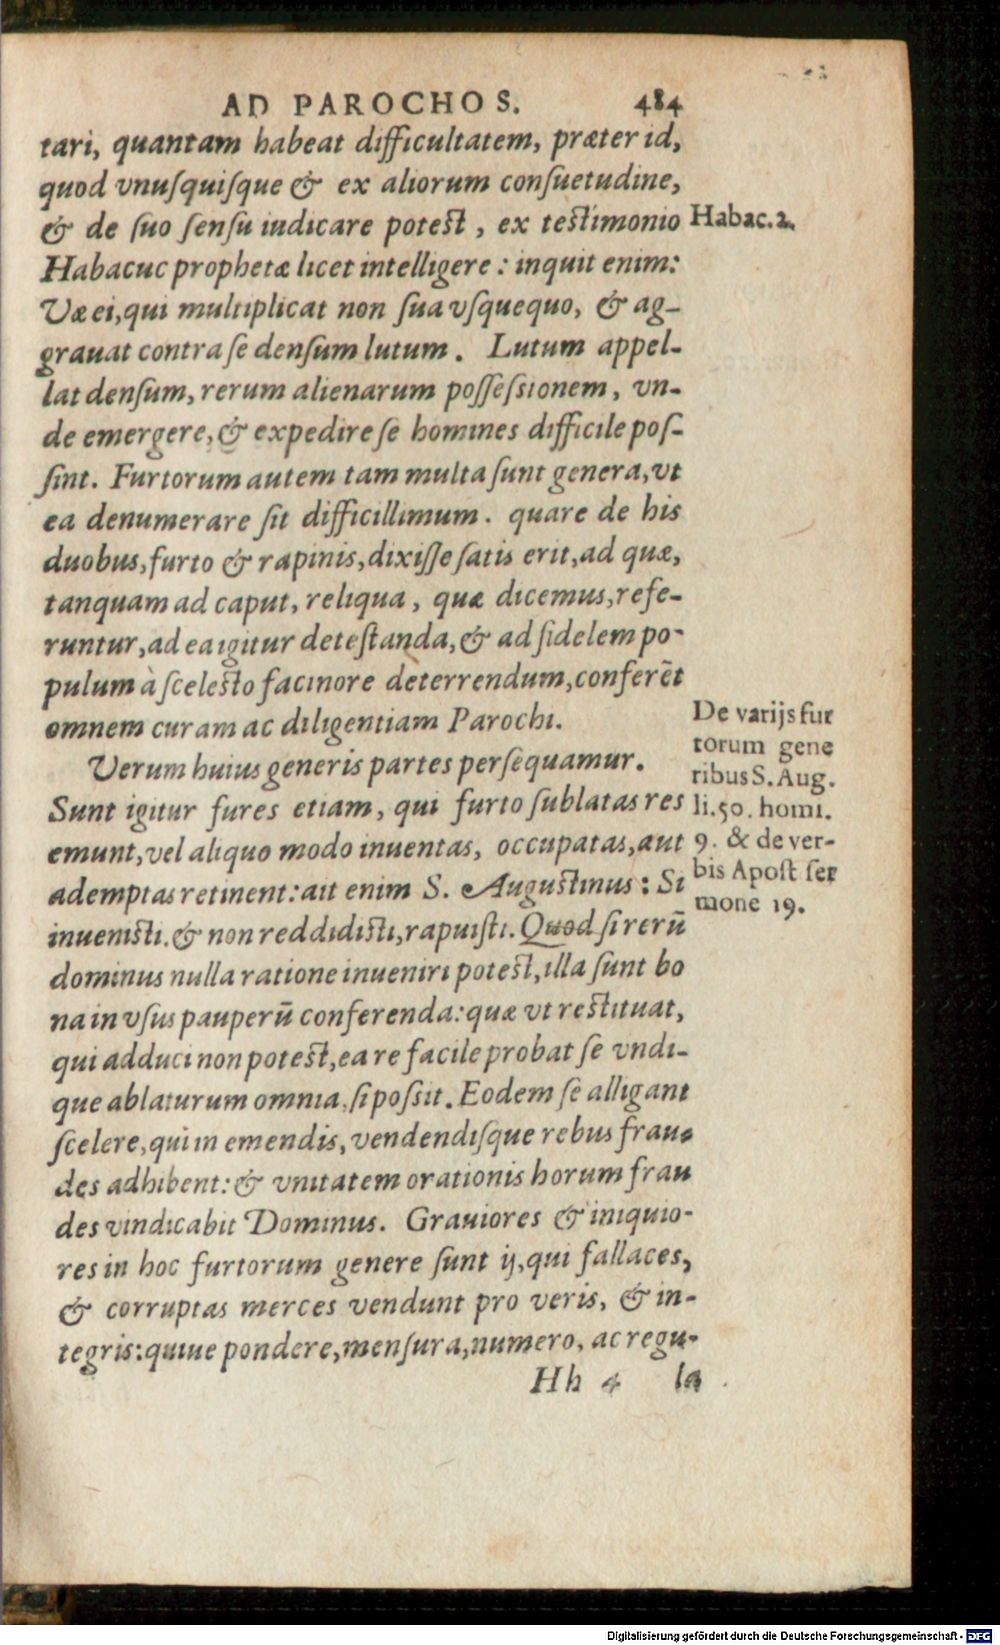 AD PAROCHOS. 484
tari, quantam habeat difficultatem, præter id,
quod vnuſquiſque & ex aliorum conſuetudine,
& de ſuo ſenſu iudicare poteſt, ex teſtimonio
Habac. 2.
Habacuc prophetæ licet intelligere: inquit enim:
Væ ei, qui multiplicat non ſua vſquequo, & ag-
grauat contra ſe denſum lutum. Lutum appel-
lat denſum, rerum alienarum poſſeſsionem, vn-
de emergere, & expedire ſe homines difficile poſ-
ſint. Furtorum autem tam multa ſunt genera, vt
ea denumerare ſit difficillimum. quare de his
duobus, furto & rapinis, dixiſſe ſatis erit, ad quæ,
tanquam ad caput, reliqua, quæ dicemus, refe-
runtur, ad ea igitur deteſtanda, & ad fidelem po-
pulum à ſceleſto facinore deterrendum, conferēt
omnem curam ac diligentiam Parochi.
Verum huius generis partes perſequamur.
Sunt igitur fures etiam, qui furto ſublatas res
emunt, vel aliquo modo inuentas, occupatas, aut
ademptas retinent: ait enim S. Auguſtinus: Si
inueniſti. & non reddidiſti, rapuiſti. Quod ſi rerū
dominus nulla ratione inueniri poteſt, illa ſunt bo
na in vſus pauperū conferenda: quæ vt reſtituat,
qui adduci non poteſt, ea re facile probat ſe vndi-
que ablaturum omnia, ſi poſsit. Eodem ſe alligant
ſcelere, qui in emendis, vendendiſque rebus frau-
des adhibent: & vnitatem orationis horum frau
des vindicabit Dominus. Grauiores & iniquio-
res in hoc furtorum genere ſunt ij, qui fallaces,
& corruptas merces vendunt pro veris, & in-
tegris: quiue pondere, menſura, numero, ac regu-
De varijs fur
torum gene
ribus S. Aug.
li. 50. homi.
9. & de ver-
bis Apoſt ſer
mone 19.
Hh 4 la
Digitalisierung gefördert durch die Deutsche Forschungsgemeinschaft - DFG